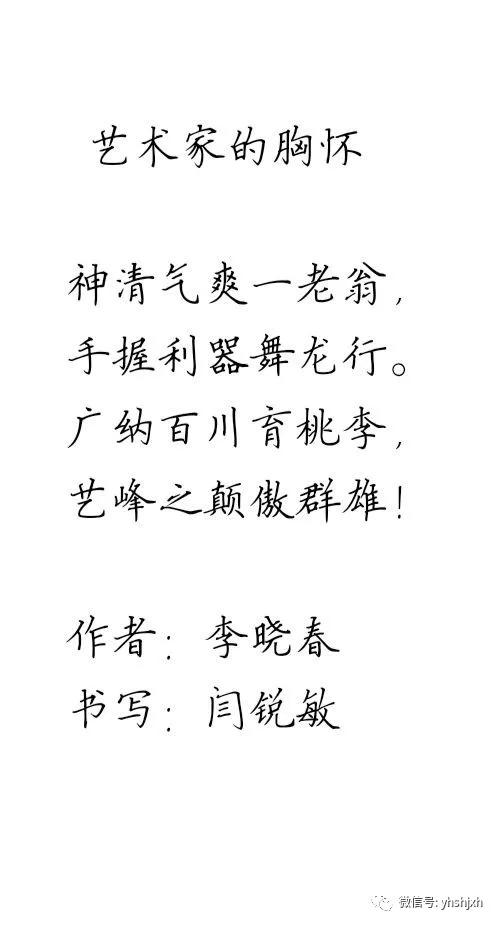 艺术家的胸怀
神清气爽一老翁，
手握利器舞龙行。
广纳百川育桃李，
艺峰之颠傲群雄！
作者：李晓春
书写：闫锐敏
微信号: yhshjxh